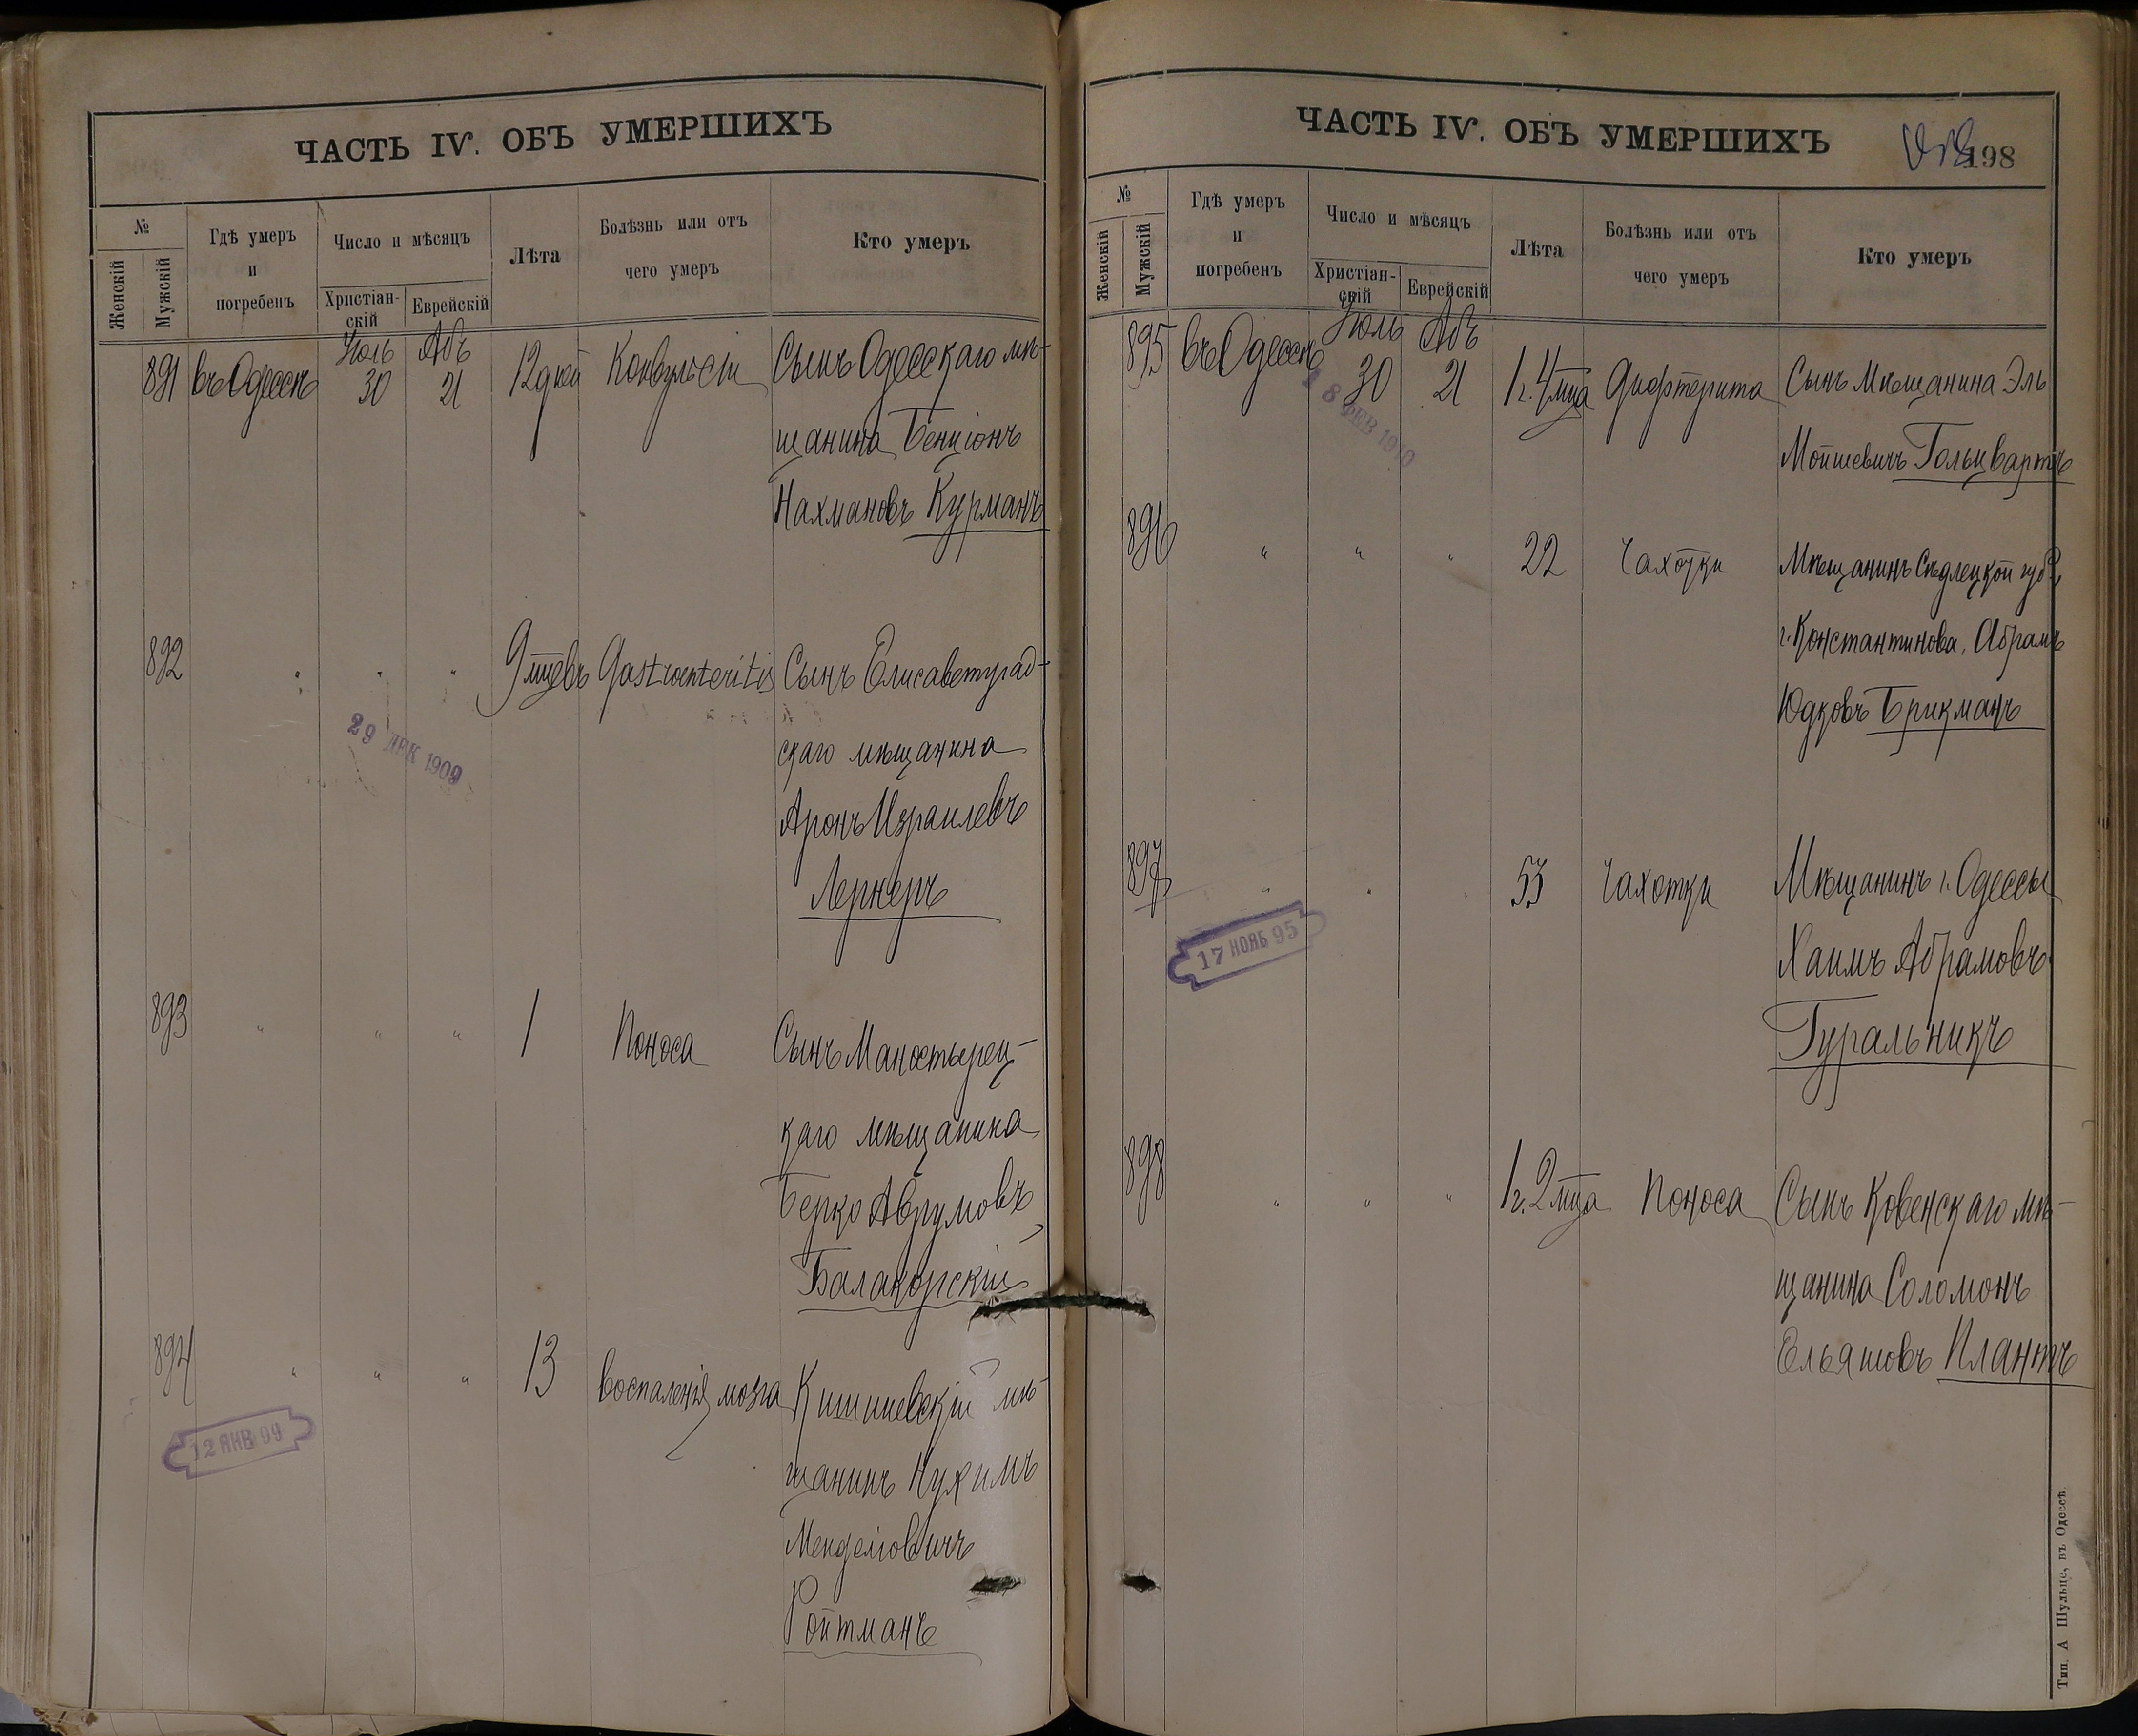 ЧАСТЬ IV. ОБЪ УМЕРШИХЪ
№
Женскій
Мужскій
Гдѣ умеръ
и
погребенъ
Число и мѣсяцъ
Христіан-
скій
Еврейскій
Лѣта
Болѣзнь или отъ
чего умеръ
Кто умеръ
Іюль Абъ
891 въ Одессѣ 30 21 12 дней Конвульсіи Сынъ Одесскаго мѣ-
щанина Бенціонъ
Нахмановъ Курманъ
892 " " " 9 мцевъ Gastroenteritis Сынъ Елисаветград-
скаго мѣщанина
Аронъ Израилевъ
Лернеръ
29 ДЕК 1909
893 " " " 1 Поноса Сынъ Манастырец-
каго мѣщанина
Берко Аврумовъ
Балакорскій
894 " " " 13 воспаленія мозга Кишиневскій мѣ-
щанинъ Нухимъ
Менделіовичъ
Ройтманъ
12 ЯНВ 99
ЧАСТЬ IV. ОБЪ УМЕРШИХЪ
198
№
Женскій
Мужскій
Гдѣ умеръ
и
погребенъ
Число и мѣсяцъ
Христіан-
скій
Еврейскій
Лѣта
Болѣзнь или отъ
чего умеръ
Кто умеръ
Іюль Абъ
895 въ Одессѣ 30 21 1 г. 4 мца Дифтерита Сынъ Мѣщанина Эль
Мойшевичъ Гольцвартъ
8 ФЕВ 1910
896 " " " 22 Чахотки Мѣщанинъ Сѣдлецкой губ.
г. Константинова, Абрамъ
Юдковъ Брикманъ
897 " " " 53 Чахотки Мѣщанинъ г. Одессы
Хаимъ Абрамовъ
Гуральникъ
17 НОЯБ 95
898 " " " 1 г. 2 мца Поноса Сынъ Ковенскаго мѣ-
щанина Соломонъ
Ельяшовъ Плантъ
Тип. А Шульце, въ Одессѣ.